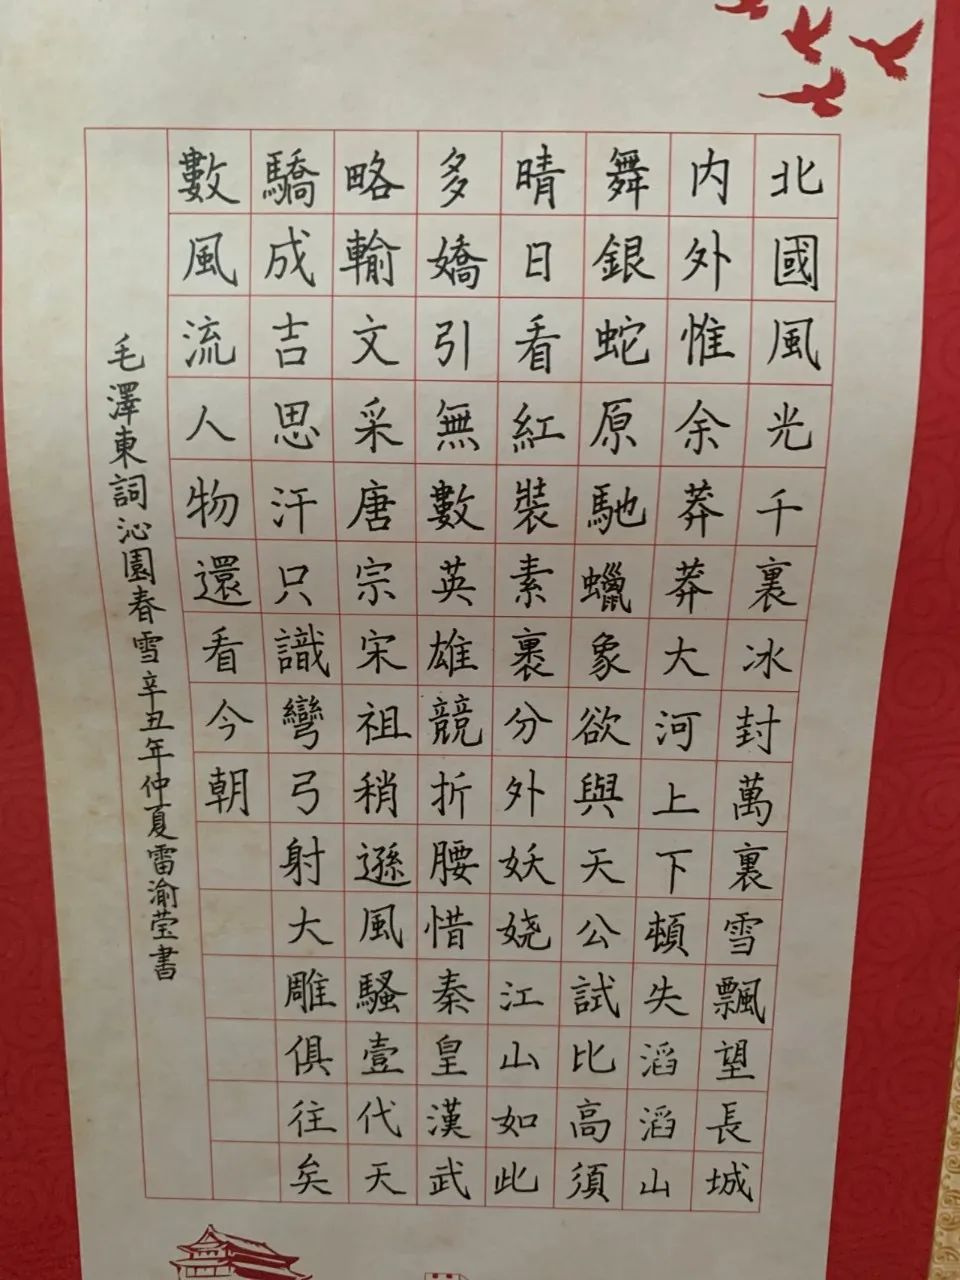 北國風光千裏冰封萬裏雪飄望長城
内外惟余莽莽大河上下頓失滔滔山
舞銀蛇原馳蠟象欲與天公試比高須
晴日看紅裝素裹分外妖娆江山如此
多嬌引無數英雄競折腰惜秦皇漢武
略輸文采唐宗宋祖稍遜風騷壹代天
驕成吉思汗只識彎弓射大雕俱往矣
數風流人物還看今朝
毛澤東詞沁園春雪辛丑年仲夏雷渝莹書